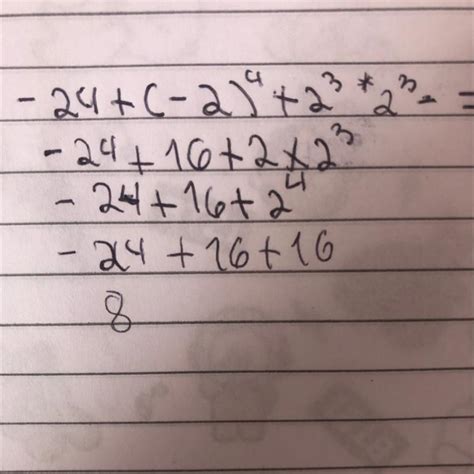 -24+(-2)⁴+2³*2³- =
-24+16+2×2³
-24+16+2⁴
-24+16+16
8